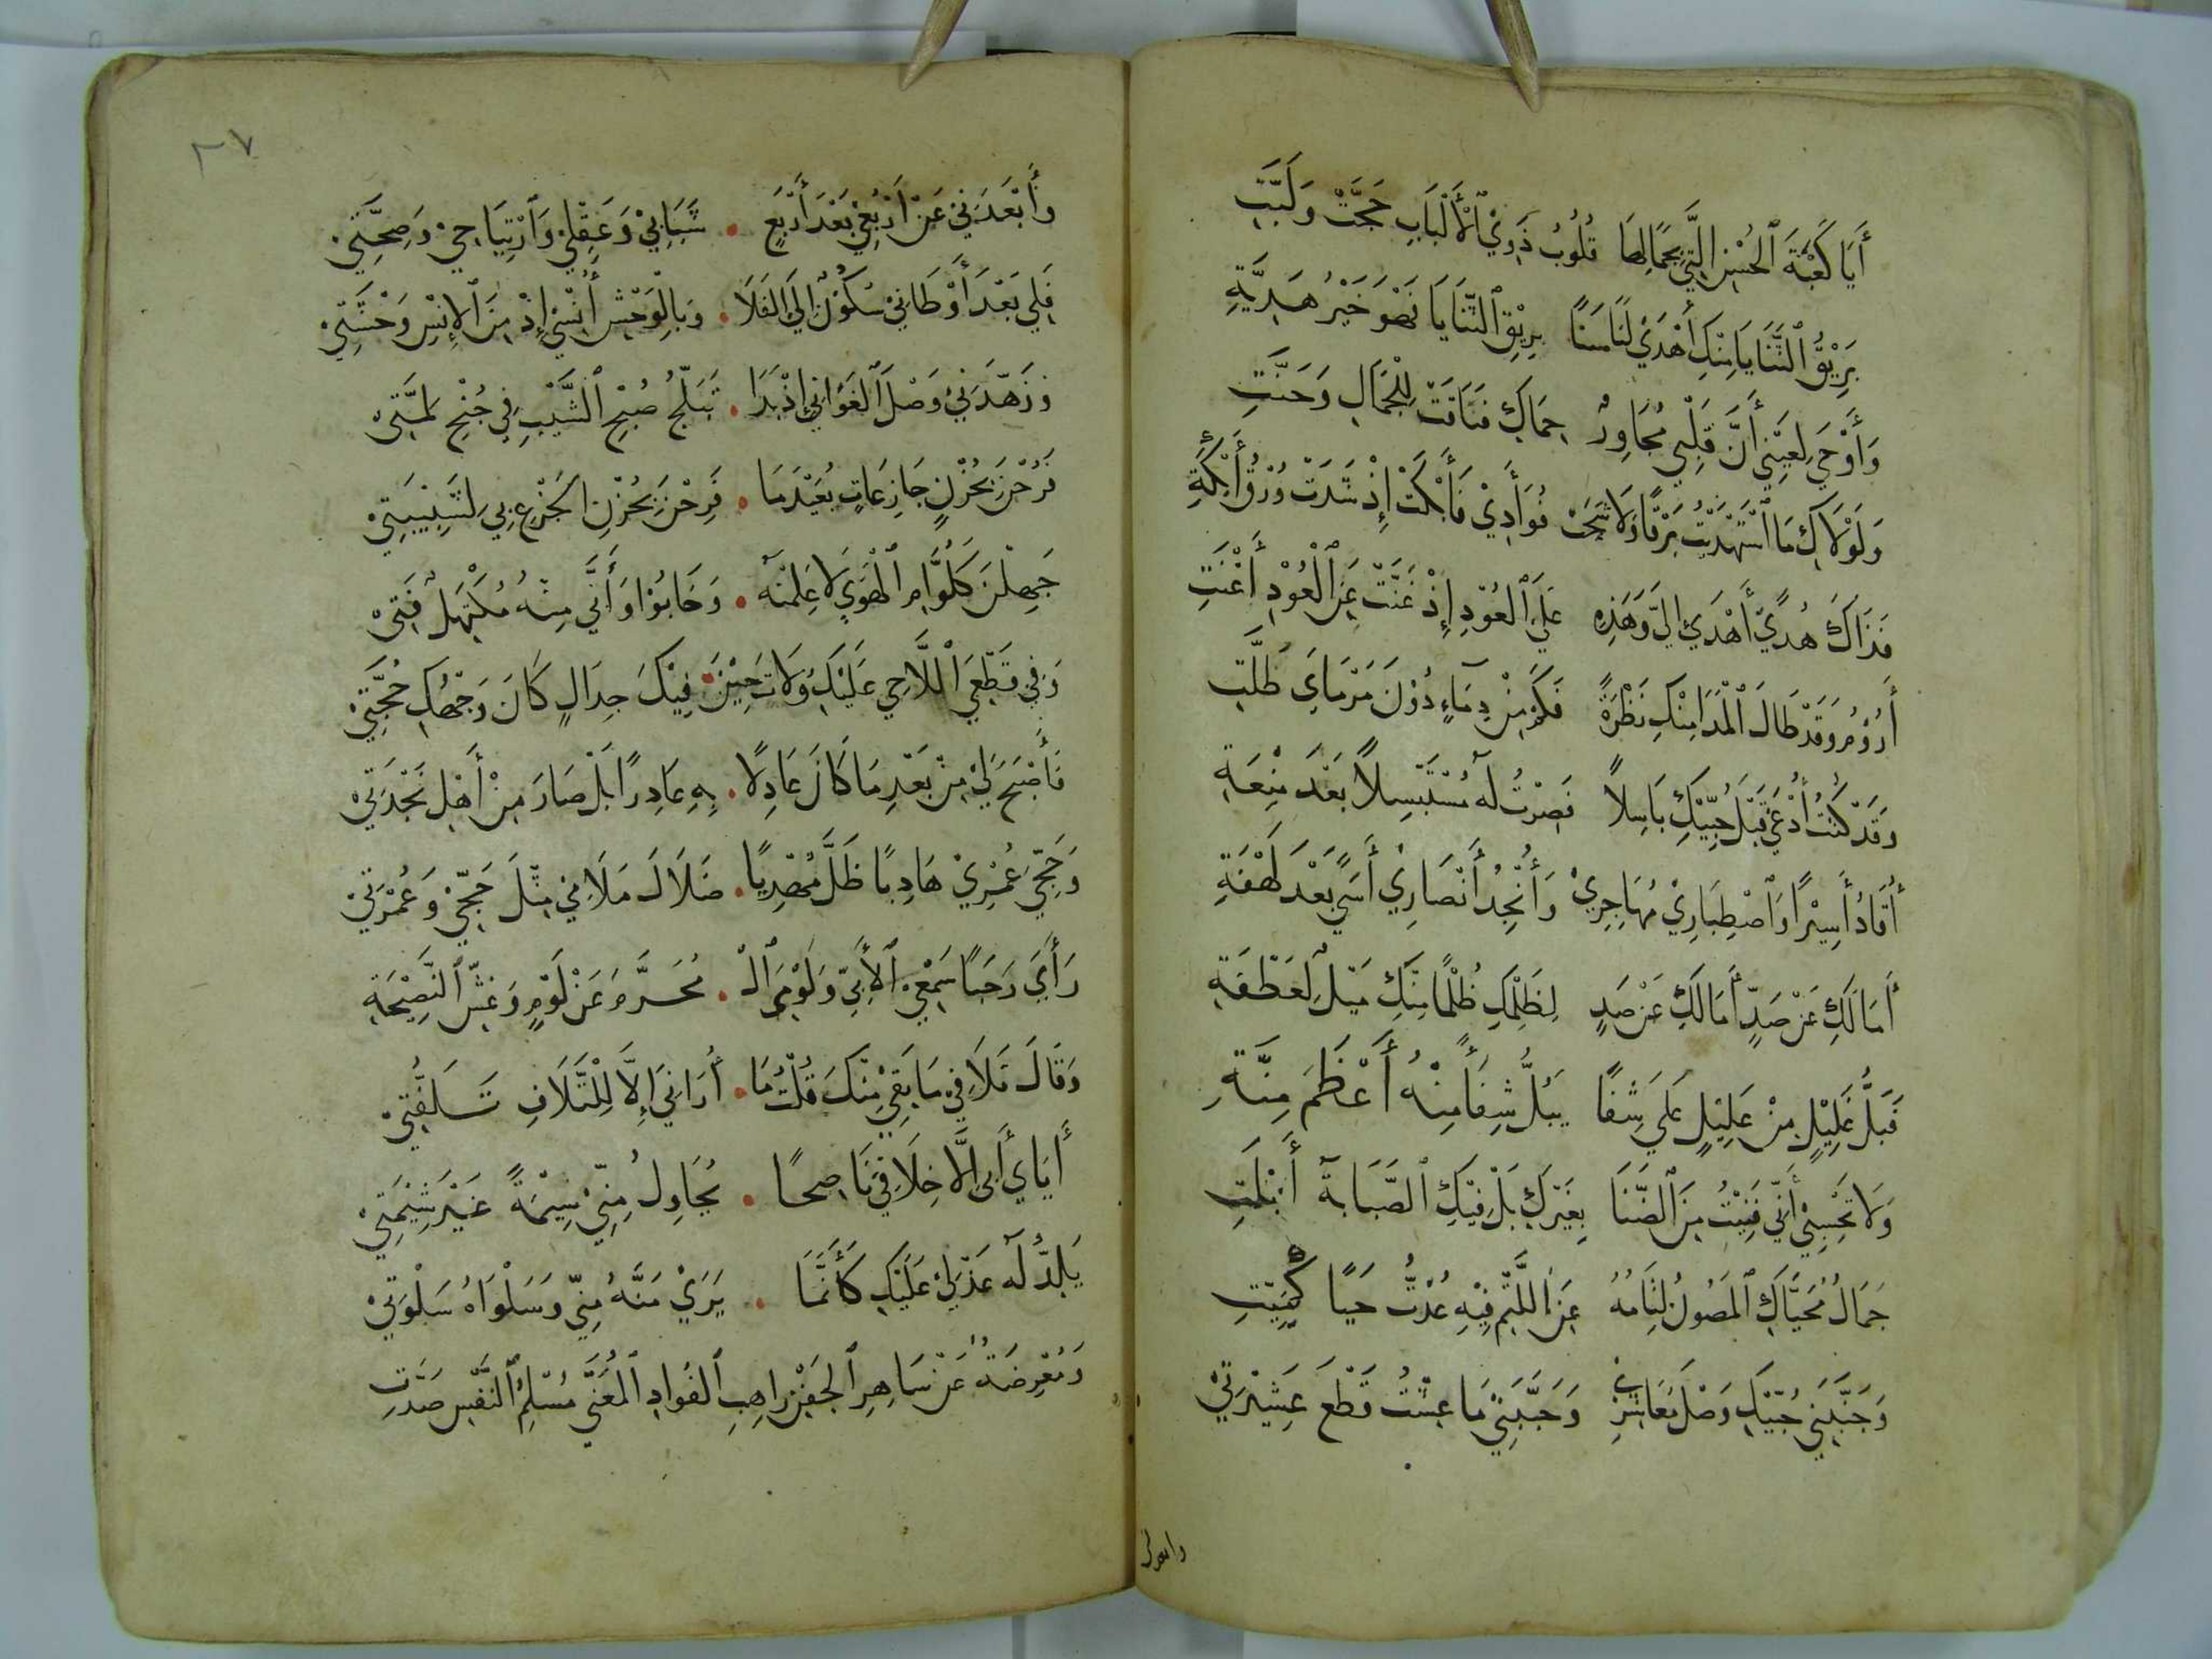 أَيَا كَعْبَةَ ٱلحُسْنِ الَّتِي بِجَمَالِهَا قُلُوبُ ذَوِي ٱلأَلْبَابِ حَجَّتْ وَلَبَّتِ
بَرِيْقُ ٱلثَّنَايَا مِنْكِ أَهْدَى لَنَا سَنًا بِرِيْقِ ٱلثَّنَايَا فَهْوَ خَيْرُ هَدِيَّةِ
وَأَوْحَى لِعَيْنِي أَنَّ قَلْبِي مُجَاوِرٌ حِمَاكِ فَتَاقَتْ لِلْجَمَالِ وَحَنَّتِ
وَلَوْلَاكِ مَا ٱسْتَهْدَيْتُ بَرْقًا وَلَا شَجَتْ فُوَأدِيْ فَأَبْكَتْ إِذْ شَدَتْ وُرْقُ أَيْكَةِ
فَذَاكَ هُدًى أَهْدَى إِلَيَّ وَهَذِهِ عَلَى ٱلعُوْدِ إِذْ غَنَّتْ عَنِ ٱلْعُوْدِ أَغْنَتِ
أَرُوْمُ وَقَدْ طَالَ ٱلْمَدَا مِنْكِ نَظْرَةً فَكَمْ مِنْ دِمَاءٍ دُوْنَ مَرْمَايَ طُلَّتِ
وَقَدْ كُنْتُ أُدْعَى قَبْلَ حُبِّيْكِ بَاسِلاً فَصِرْتُ لَهُ مُسْتَبْسِلاً بَعْدَ مِنْعَةِ
أُقَادُ أَسِيْرًا وَٱصْطِبَارِيْ مُهَاجِرِيْ وَأُنْجِدُ أَنْصَارِيْ أَسًى بَعْدَ لَهْفَةِ
أَمَا لَكِ عَنْ صَدٍّ أَمَالَكِ عَنْ صَدٍ لِظَلْمِكِ ظُلْمًا مِنْكِ مَيْلٌ لِعَطْفَةِ
فَبَلُّ غَلِيْلٍ مِنْ عَلِيْلٍ عَلَى شَفًا يُبِلُّ شِفَاءً مِنْهُ أَعْظَمُ مِنَّةِ
وَلَا تَحْسِبِيْ أَنِّي فَنِيْتُ مِنَ ٱلضَّنَا بِغَيْرِكِ بَلْ فِيْكِ ٱلصَّبَابَةُ أَبْلَتِ
جَمَالُ مُحَيَّاكِ ٱلمَصُونُ لِثَامُهُ عَنِ ٱللَّثْمِ فِيْهِ عُدْتُ حَيًا كَمَيِّتِ
وَجَنَّبَنِي حُبِّيْكِ وَصْلَ مُعَاشِرِي وَحَبَّبَنِيْ مَا عِشْتُ قَطْعَ عَشِيْرَتِيْ
وابعدني
٣٧
وَأَبْعَدَنِيْ عَنْ أَرْبُعِيْ بَعْدَ أَرْبَعٍ . شَبَابِيْ وَعَقْلِيْ وَٱرْتِيَاحِيْ وَصِحَّتِيْ
فَلِي بَعْدَ أَوْطَانِيْ سُكُوْنٌ إِلَى الفَلَا . وَبِالْوَحْشِ أُنْسِيْ إِذْ مِنَ ٱلإِنْسِ وَحْشَتِيْ
وَزَهَّدَ نِيْ وَصْلَ ٱلْغَوَانِيْ إِذْ بَدَا . تَبَلُّجُ صُبْحِ ٱلشَّيْبِ فِي جُنْحِ لِمَّتِيْ
فَرُحْنَ بِحُزْنٍ جَازِعَاتٍ بُعَيْدَمَا . فَرِحْنَ بِحُزْنِ الجِزْعِ بِيْ لِشَبِيْبَتِيْ
جَهِلْنَ كَلُوَّامِ ٱلْهَوَى لَا عَلِمْنَهُ . وَخَابُوْا وَأَنَّى مِنْهُ مُكْتَهِلٌ فَتِيْ
وَفِي قَطْعِيَ ٱللَّاحِي عَلَيْكِ وَلَاتَ حِيْنَ . فِيْكَ جِدَالٍ كَانَ وَجْهُكِ حُجَّتِيْ
فَأَصْبَحَ لِيْ مِنْ بَعْدِ مَا كَانَ عَاذِلًا . بِهِ عَاذِرًا بَلْ صَارَ مِنْ أَهْلِ نَجْدَتِيْ
وَحَجِّيَ عُمْرِيْ هَادِيًا ظَلَّ مُهْدِيًا . ضَلَالَ مَلَامِي مِثْلَ حَجِّيْ وَعُمْرَتِيْ
رَأَى رَجَبًا سَمْعِيْ ٱلأَبِيَّ وَلَوْمِيَ ٱلْ . مُحَرَّمَ عَنْ لَوْمٍ وَغِشِّ ٱلنَّصِيْحَةِ
وَقَالَ تَلَافِيْ مَا بَقِيْ مِنْكَ قُلْتُ مَا . أُرَانِيَ إِلَّا لِلتَّلَافِ تَلَفُّتِيْ
أَيَاي أَبَى إِلَّا خِلَافِيْ نَاصِحًا . يُحَاوِلُ مِنِّيْ شِيْمَةً غَيْرَ شِيْمَتِيْ
يَلَذُّ لَهُ عَذْلِيْ عَلَيْكِ كَأَنَّمَا . يَرَيْ مَنَّهُ مَنِّي وَسَلْوَاهُ سَلْوَتِيْ
وَمُعْرِضَةٌ عَنْ سَاهِرِ ٱلجَفْنِ رَاهِبِ ٱلفُوَادِ ٱلمُعَنَّى مُسْلِمِ ٱلنَّفْسِ صَدَّتِ